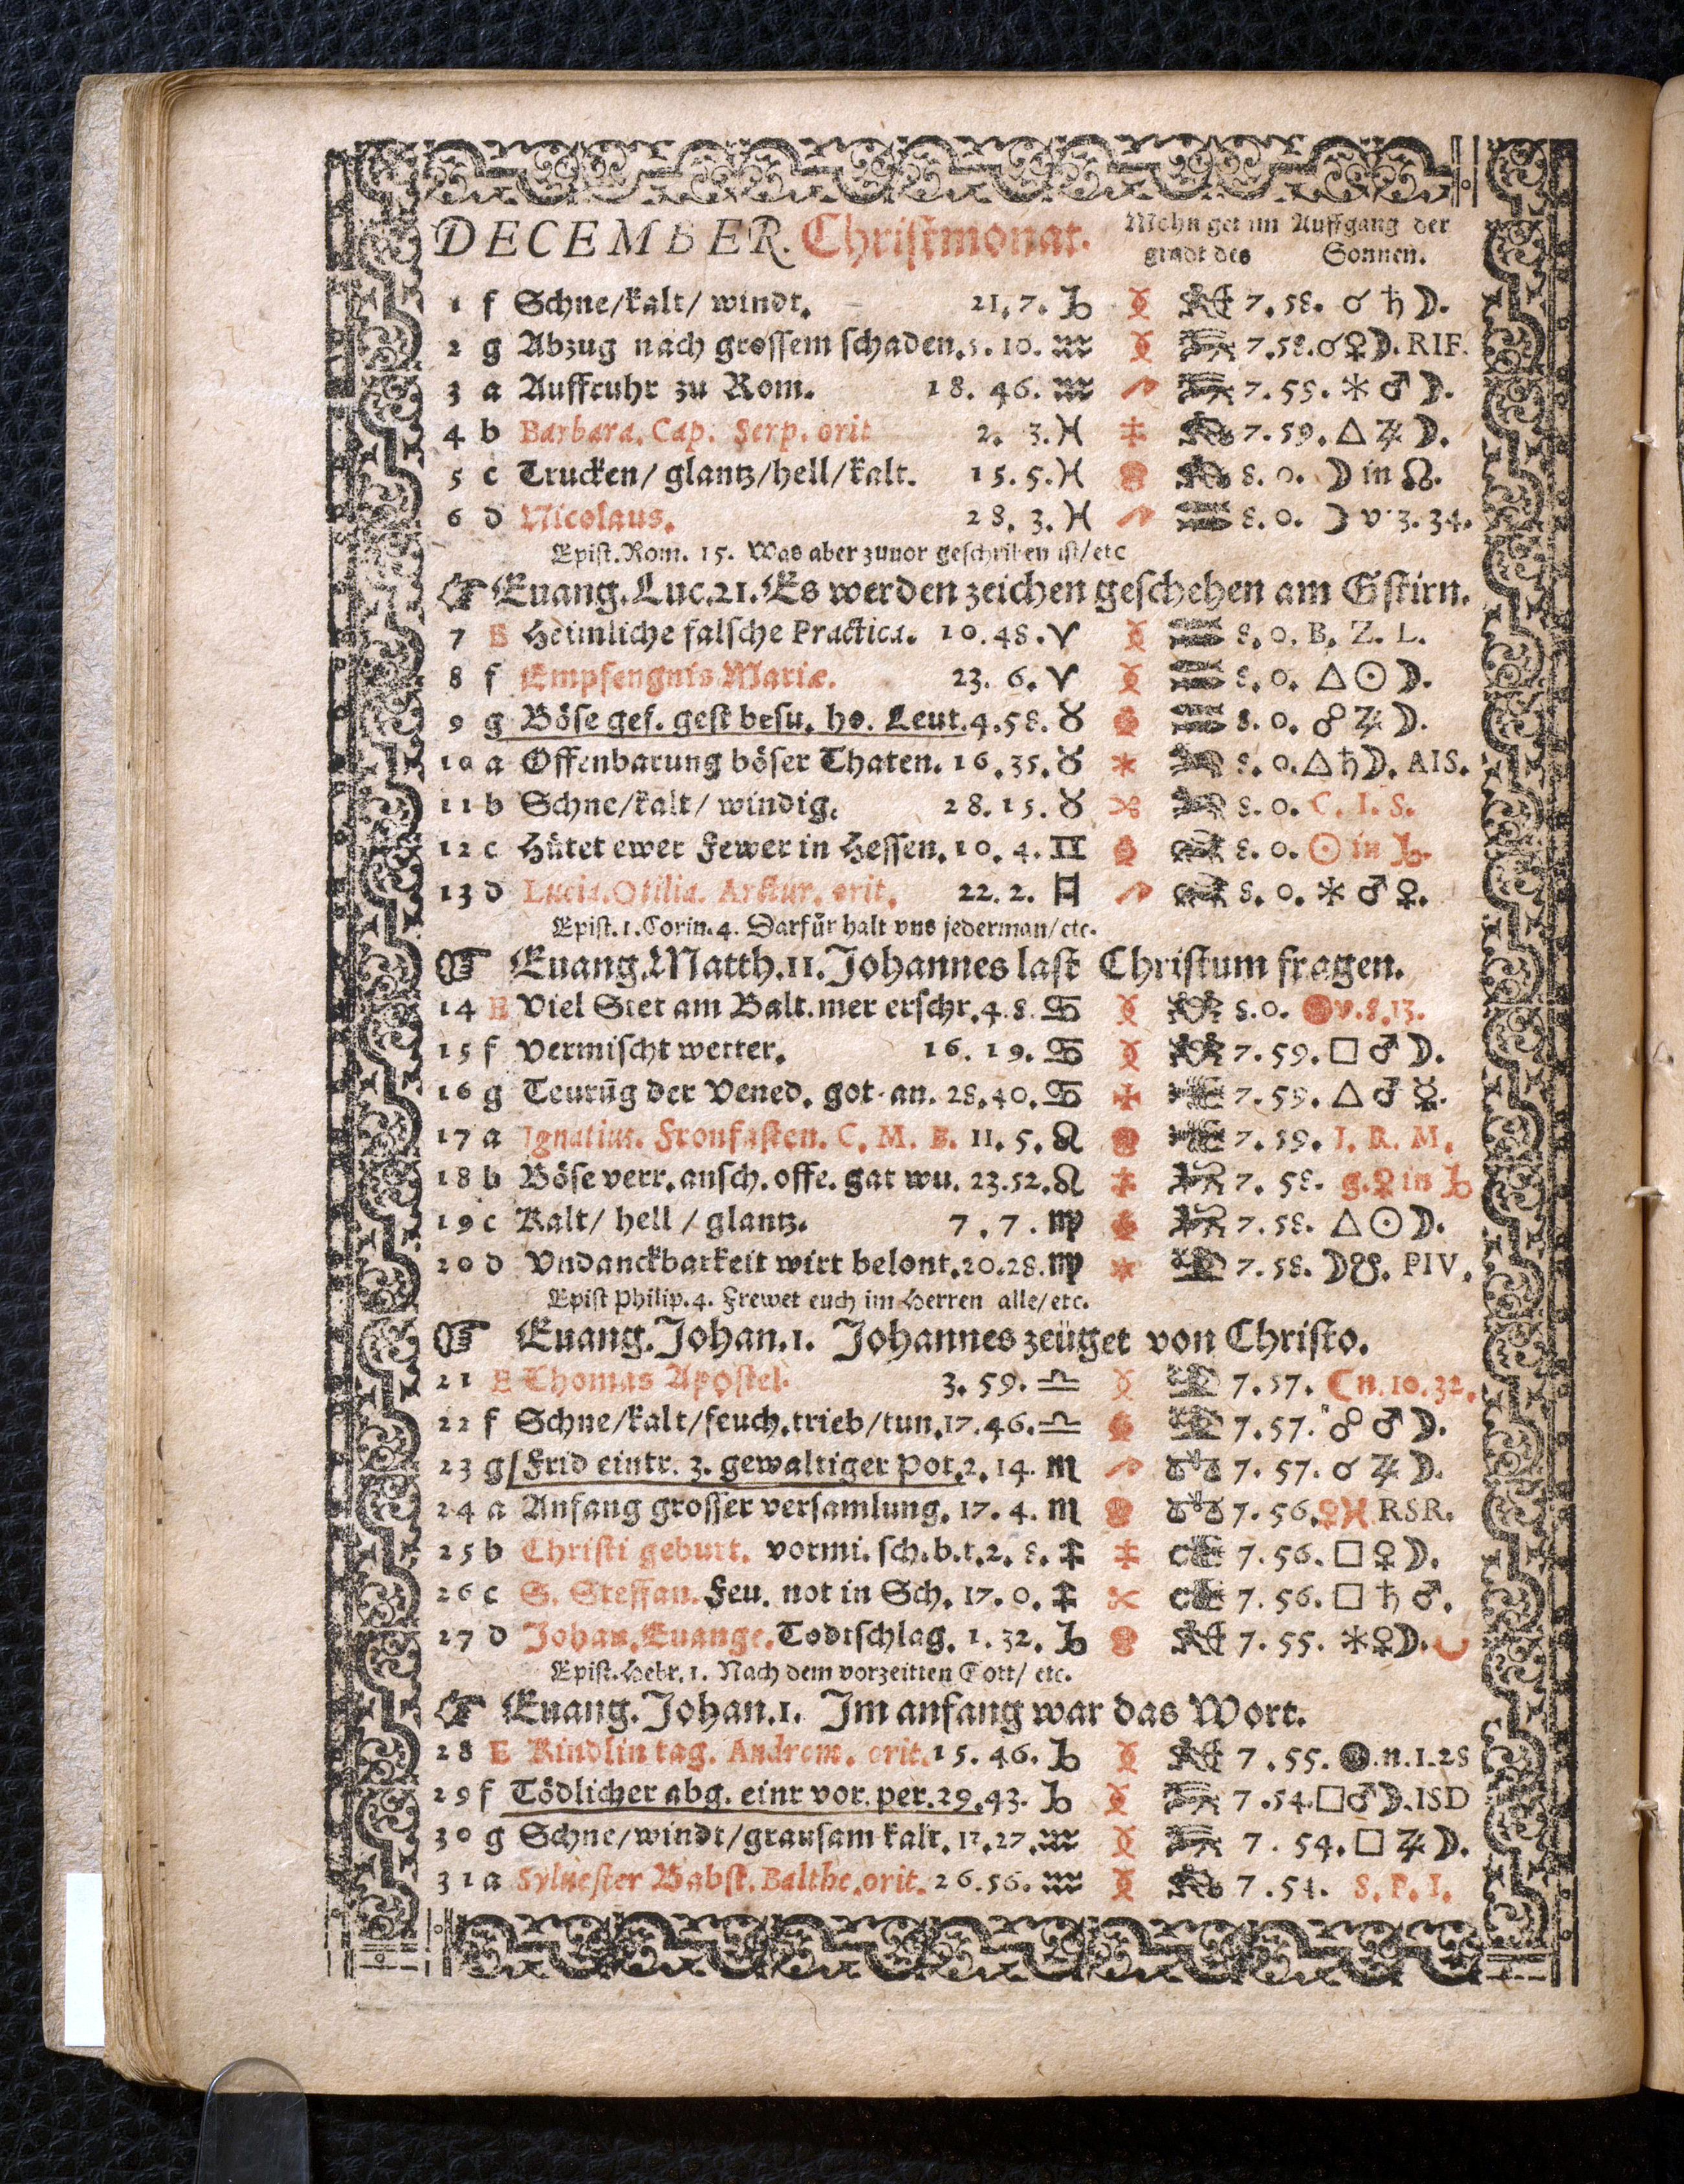 DECEMBER. Christmonat. Mohn get im gradt des Auffgang der Sonnen.
1 f Schne/kalt/ windt. 21. 7. ♑ 7. 58. ☌ ♄ ☽.
2 g Abzug nach grossem schaden. 5. 10. ♒ 7. 58. ☌ ♀ ☽. RIF.
3 a Auffruhr zu Rom. 18. 46. ♒ 7. 59. ✶ ♂ ☽.
4 b Barbara. Cap. Serp. orit 2. 3. ♓ 7. 59. △ ♃ ☽.
5 c Trucken/ glantz/hell/kalt. 15. 5. ♓ 8. 0. ☽ in ☊.
6 d Nicolaus. 28. 3. ♓ 8. 0. ☽ v. 3. 34.
Epist. Rom. 15. Was aber zuuor geschriben ist/etc
☞ Euang. Luc. 21. Es werden zeichen geschehen am Gstirn.
7 E Heimliche falsche Practica. 10. 48. ♈ 8. 0. B. Z. L.
8 f Empfengnis Mariæ. 23. 6. ♈ 8. 0. △ ☉ ☽.
9 g Böse gef. gest besu. ho. Leut. 4. 58. ♉ 8. 0. ☍ ♃ ☽.
10 a Offenbarung böser Thaten. 16. 35. ♉ 8. 0. △ ♄ ☽. AIS.
11 b Schne/kalt/ windig. 28. 15. ♉ 8. 0. C. I. S.
12 c Hütet ewer Fewer in Hessen. 10. 4. ♊ 8. 0. ☉ in ♑.
13 d Lucia. Otilia. Arctur. orit. 22. 2. ♊ 8. 0. ✶ ♂ ♀.
Epist. 1. Corin. 4. Darfür halt vns jederman/etc.
☞ Euang. Matth. 11. Johannes last Christum fragen.
14 E Viel Stet am Balt. mer erschr. 4. 8. ♋ 8. 0. v. 8. 13.
15 f Vermischt wetter. 16. 19. ♋ 7. 59. □ ♂ ☽.
16 g Teurūg der Vened. got. an. 28. 40. ♋ 7. 59. △ ♂ ☿.
17 a Ignatius. Fronfasten. C. M. B. 11. 5. ♌ 7. 59. I. R. M.
18 b Böse verr. ansch. offe. gat wu. 23. 52. ♌ 7. 58. g. ♀ in ♑
19 c Kalt/ hell / glantz. 7. 7. ♍ 7. 58. △ ☉ ☽.
20 d Vndanckbarkeit wirt belont. 20. 28. ♍ 7. 58. ☽ ☋. PIV.
Epist Philip. 4. Frewet euch im Herren alle/etc.
☞ Euang. Johan. 1. Johannes zeüget von Christo.
21 E Thomas Apostel. 3. 59. ♎ 7. 57. ☾ n. 10. 32.
22 f Schne/kalt/feuch. trieb/tun. 17. 46. ♎ 7. 57. ☍ ♂ ☽.
23 g Frid eintr. 3. gewaltiger Pot. 2. 14. ♏ 7. 57. ☌ ♃ ☽.
24 a Anfang grosser versamlung. 17. 4. ♏ 7. 56. ♀ ♓ RSR.
25 b Christi geburt. vormi. sch. b. t. 2. 8. ♐ 7. 56. □ ♀ ☽.
26 c S. Steffan. Feu. not in Sch. 17. 0. ♐ 7. 56. □ ♄ ♂.
27 d Johan. Euange. Todtschlag. 1. 32. ♑ 7. 55. ✶ ♀ ☽.
Epist. Hebr. 1. Nach dem vorzeitten Gott/ etc.
☞ Euang. Johan. 1. Im anfang war das Wort.
28 E Kindlin tag. Androm. orit. 15. 46. ♑ 7. 55. ●. n. 1. 28
29 f Tödlicher abg. einr vor. per. 29. 43. ♑ 7. 54. □ ♂ ☽. ISD
30 g Schne/windt/grausam kalt. 17. 27. ♒ 7. 54. □ ♃ ☽.
31 a Syluester Babst. Balthe. orit. 26. 56. ♒ 7. 54. S. P. I.